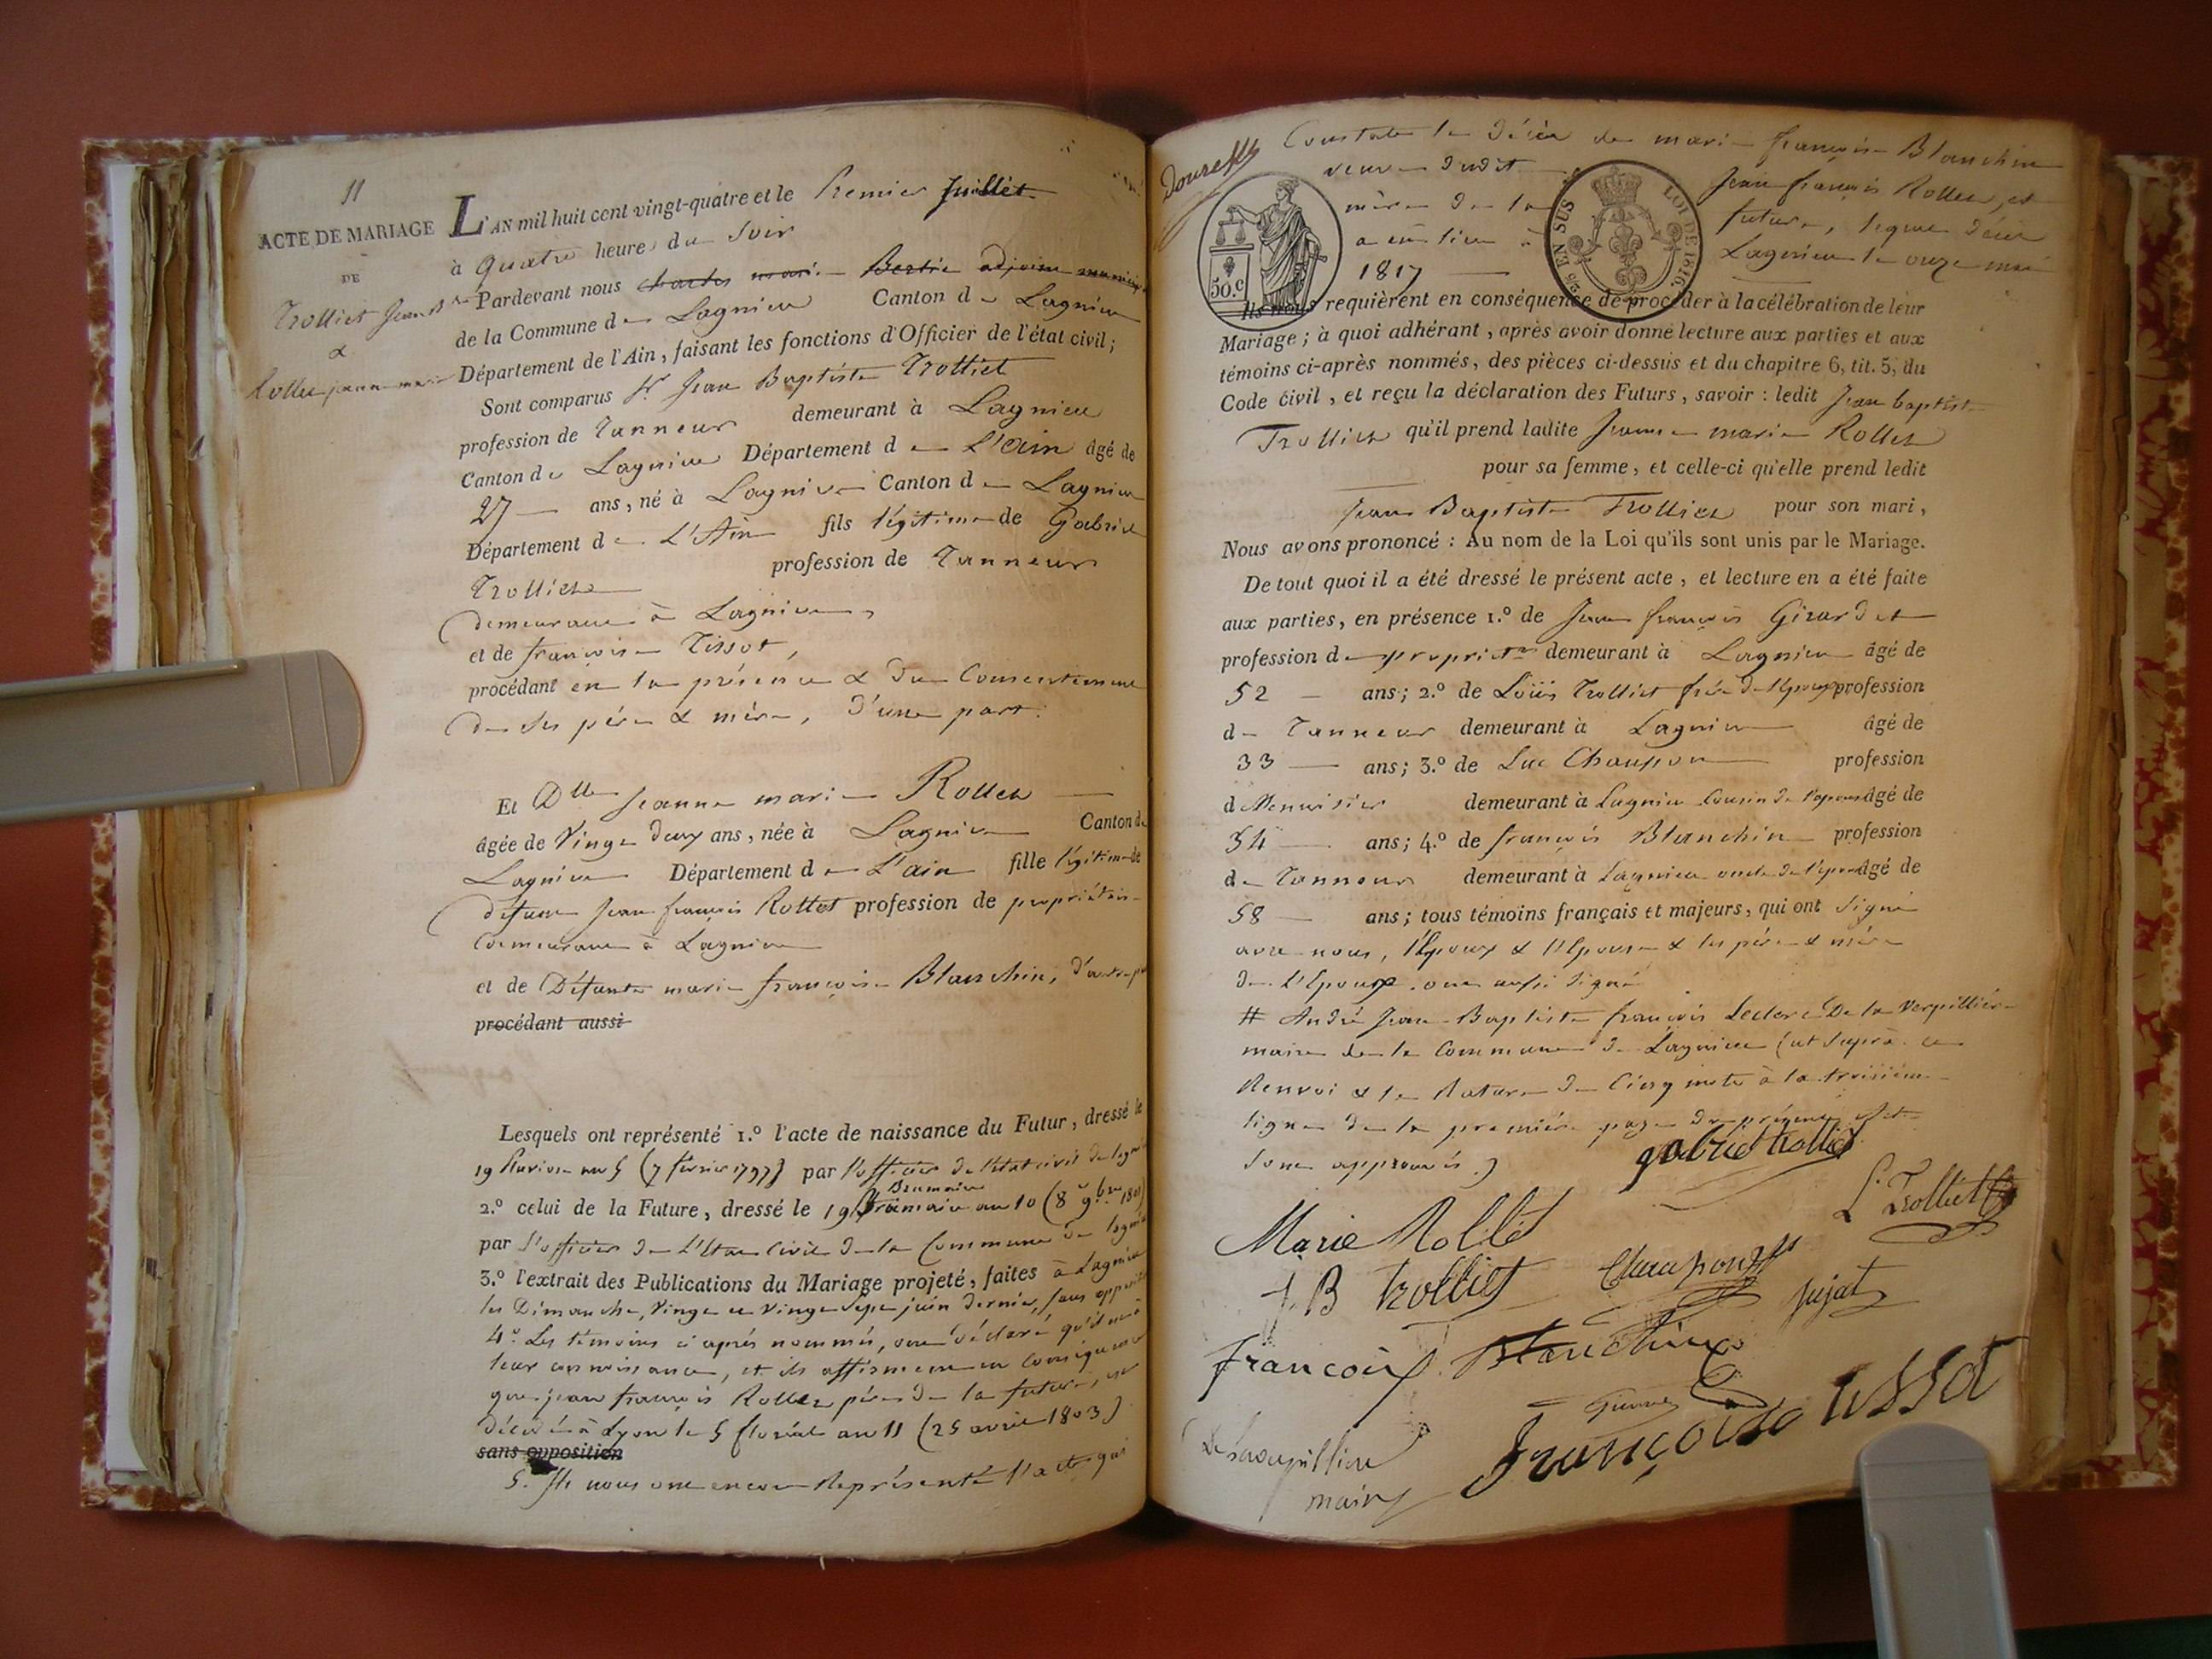 11
ACTE DE MARIAGE
DE
Trolliet Jean Bte
&
Rollet jeanne marie
L'AN mil huit cent vingt-quatre et le Premier Juillet
à Quatre heures du Soir
Pardevant nous charles marie Bertie adjoint municipal
de la Commune de Lagnieu Canton de Lagnieu
Département de l'Ain, faisant les fonctions d'Officier de l'état civil;
Sont comparus Sr. Jean Baptiste Trolliet
profession de Tanneur demeurant à Lagnieu
Canton de Lagnieu Département de L'Ain âgé de
27 ans, né à Lagnieu Canton de Lagnieu
Département de L'Ain fils légitime de Gabriel
Trolliet profession de Tanneur
demeurant à Lagnieu,
et de françoise Tissot,
procédant en la présence & du Consentement
de ses père & mère, d'une part.
Et Dlle Jeanne marie Rollet
âgée de Vingt deux ans, née à Lagnieu Canton de
Lagnieu Département de L'ain fille légitime de
défunt Jean françois Rollet profession de propriétaire
demeurant à Lagnieu
et de Défunte marie françoise Blanchin, d'autre part
procédant aussi
Lesquels ont représenté 1.º l'acte de naissance du Futur, dressé le
19 Pluviose an 5 (7 février 1797) par l'officier de l'état civil de Lagnieu
2.º celui de la Future, dressé le 19 Brumaire an 10 (8 9bre 1801)
par l'officier de L'Etat Civil de la Commune de Lagnieu
3.º l'extrait des Publications du Mariage projeté, faites à Lagnieu
les Dimanche, Vingt et Vingt Sept juin dernier, sans opposition
4º. Les témoins ci après nommés, ont déclaré qu'il est à
leur connoissance, et ils affirment en conséquence
que jean françois Rollet père de la future, est
décédé à Lyon le 5 floréal an 11 (25 avril 1803)
sans opposition
5. Ils nous ont encore Représenté l'acte qui
Constate le décès de marie françoise Blanchin
veuve dudit Jean françois Rollet, et
mère de la future, lequel décès
a eu lieu à Lagnieu le onze mai
1817
50.c
25 EN SUS
LOI DE 1816
Ils nous requièrent en conséquence de procéder à la célébration de leur
Mariage; à quoi adhérant, après avoir donné lecture aux parties et aux
témoins ci-après nommés, des pièces ci-dessus et du chapitre 6, tit. 5, du
Code civil, et reçu la déclaration des Futurs, savoir: ledit Jean baptiste
Trolliet qu'il prend ladite Jeanne marie Rollet
pour sa femme, et celle-ci qu'elle prend ledit
Jean Baptiste Trolliet pour son mari,
Nous avons prononcé: Au nom de la Loi qu'ils sont unis par le Mariage.
De tout quoi il a été dressé le présent acte, et lecture en a été faite
aux parties, en présence 1.º de Jean françois Girardet
profession de propriétre demeurant à Lagnieu âgé de
52 ans; 2.º de Loüis Trolliet frère de l'époux profession
de Tanneur demeurant à Lagnieu âgé de
33 ans; 3.º de Luc Chaupon profession
de Menuisier demeurant à Lagnieu Cousin de l'épouse âgé de
34 ans; 4.º de françois Blanchin profession
de Tanneur demeurant à Lagnieu oncle de l'épouse âgé de
58 ans; tous témoins français et majeurs, qui ont signé
avec nous, l'Epoux & l'Epouse & les père & mère
de l'Epoux ont aussi signé
# André Jean-Baptiste françois Leclerc De la Verpillière
maire de la Commune de Lagnieu (ut supra. ce
Renvoi & la Rature de Cinq mots à la troisième
ligne de la première page du présent acte
sont approuvés.)
gabriel trolliet
L. Trolliet
Marie Rollet
J. B trolliet
Chaupon
Jujat
françois Blanchin
Françoise tissot
Delaverpilliere
maire